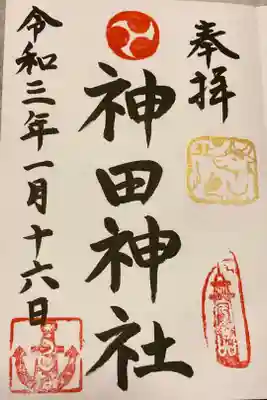 奉拝
神田神社
令和三年一月十六日